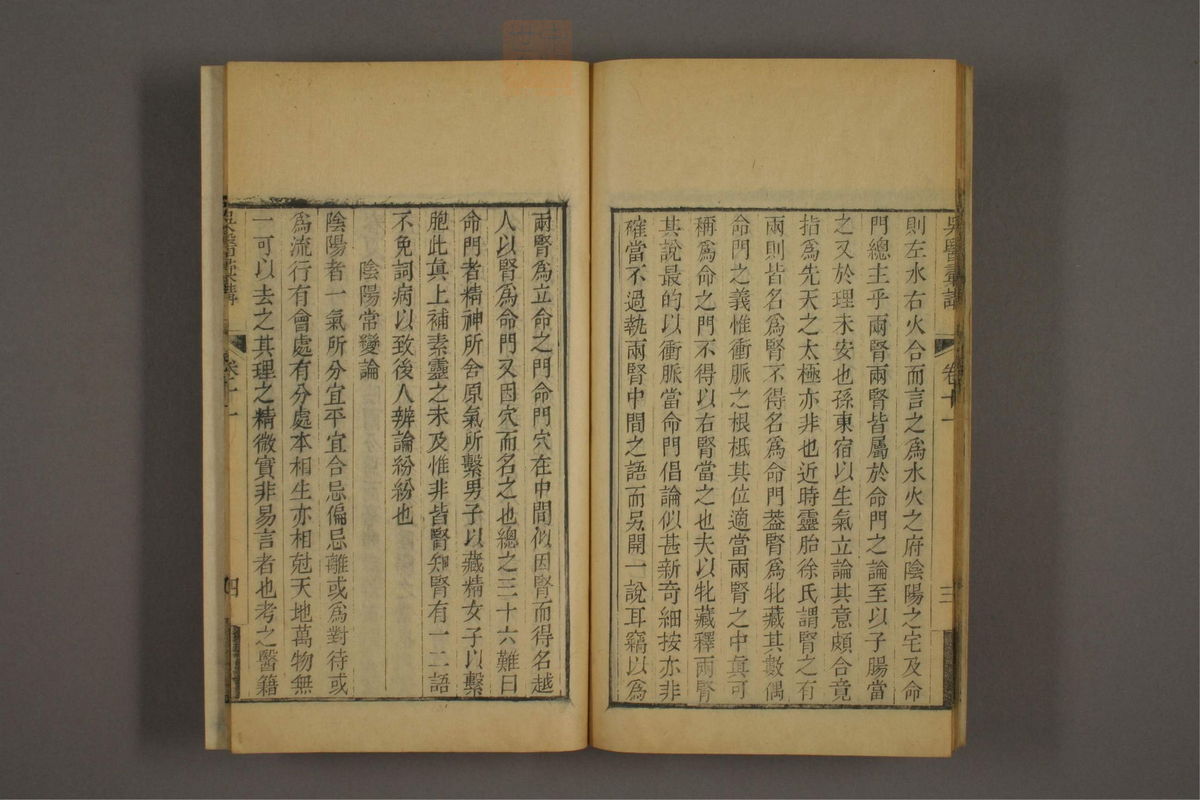 吳醫彙講
卷十一
三
則左水右火合而言之爲水火之府陰陽之宅及命
門總主乎兩腎兩腎皆屬於命門之論至以子腸當
之又於理未安也孫東宿以生氣立論其意頗合竟
指爲先天之太極亦非也近時靈胎徐氏謂腎之有
兩則皆名爲腎不得名爲命門葢腎爲牝藏其數偶
命門之義惟衝脈之根柢其位適當兩腎之中眞可
稱爲命之門不得以右腎當之也夫以牝藏釋兩腎
其說最的以衝脈當命門倡論似甚新奇細按亦非
確當不過執兩腎中間之語而另開一說耳竊以爲
兩腎爲立命之門命門穴在中間似因腎而得名越
人以腎爲命門又因穴而名之也總之三十六難曰
命門者精神所舍原氣所繫男子以藏精女子以繫
胞此眞上補素靈之未及惟非皆腎知腎有一二語
不免詞病以致後人辨論紛紛也
陰陽常變論
陰陽者一氣所分宜平宜合忌偏忌離或爲對待或
爲流行有會處有分處本相生亦相尅天地萬物無
一可以去之其理之精微實非易言者也考之醫籍
吳醫彙講
卷十一
四